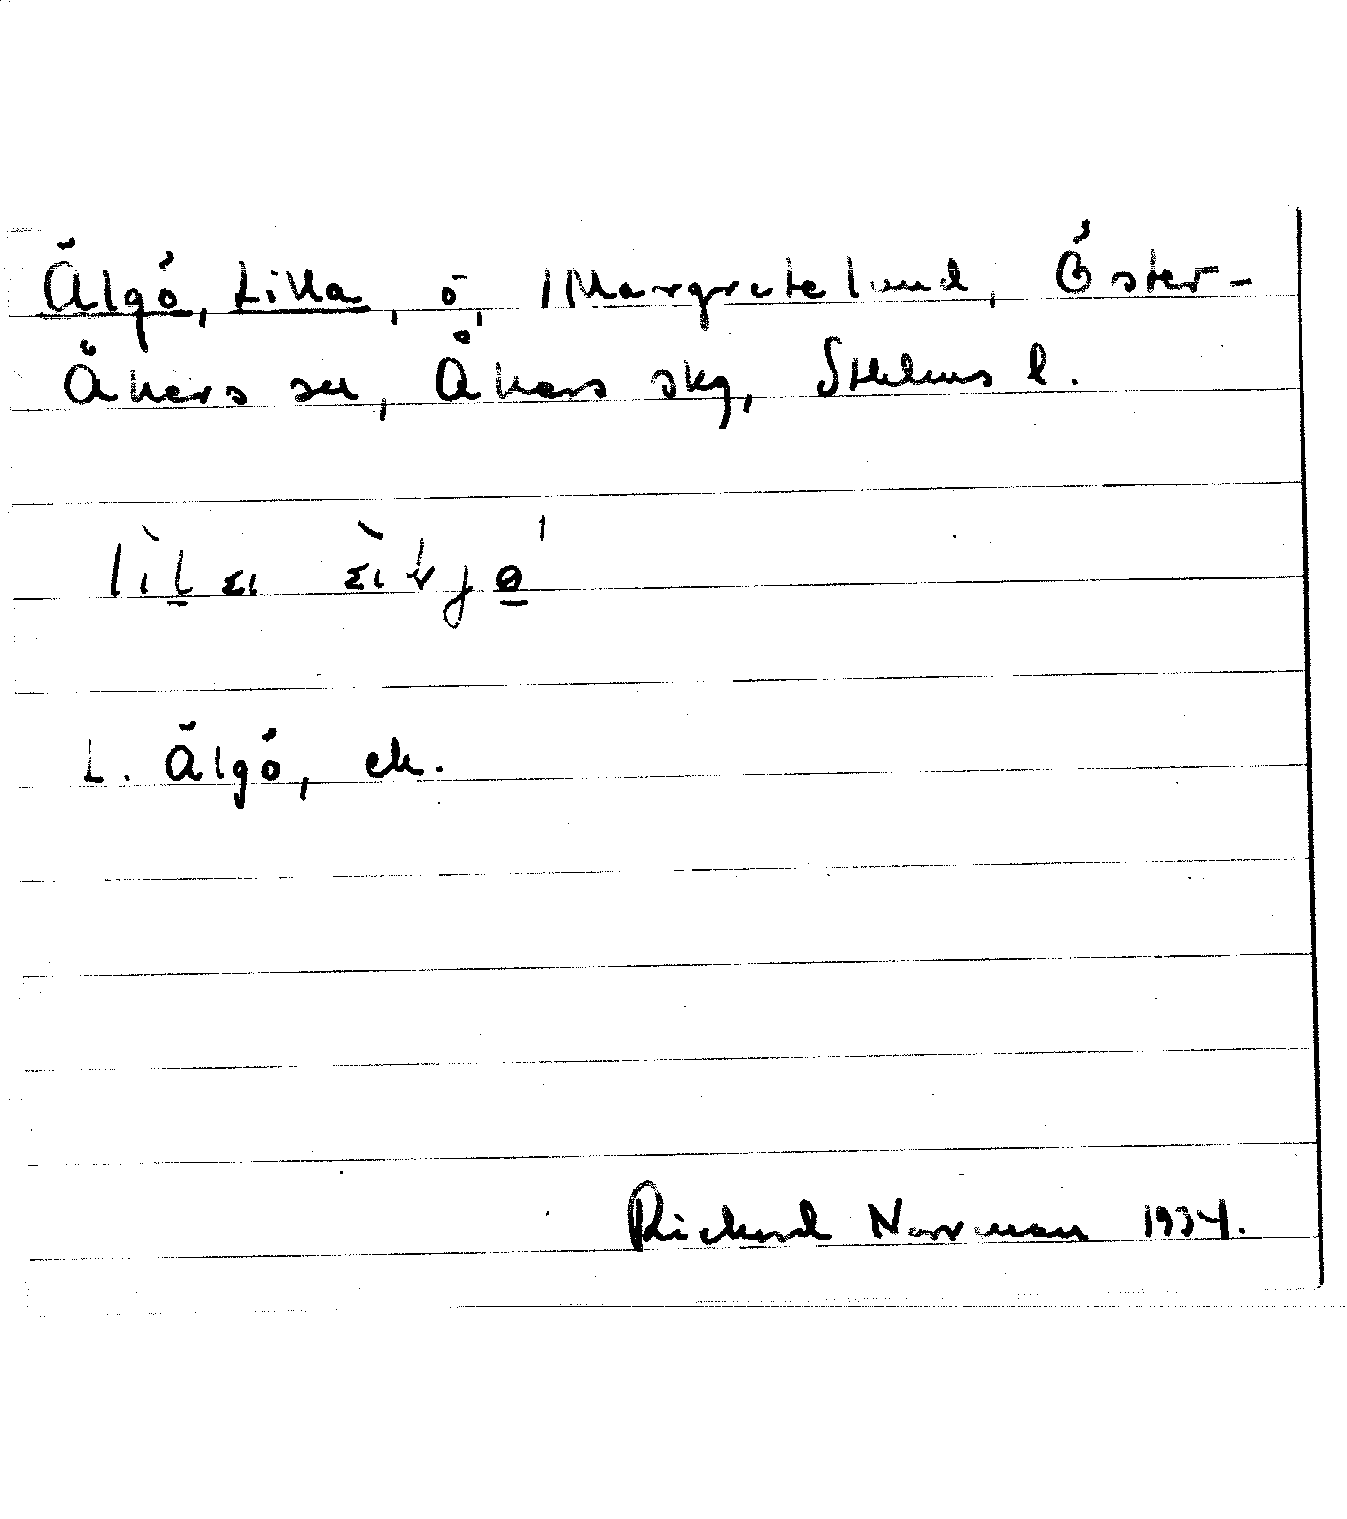 Älgö, Lilla, ö, Margretelund, Öster-
Åkers sn, Åkers skg, Sthlms l.
L. Älgö, ek.
Rickard Norrman 1934.